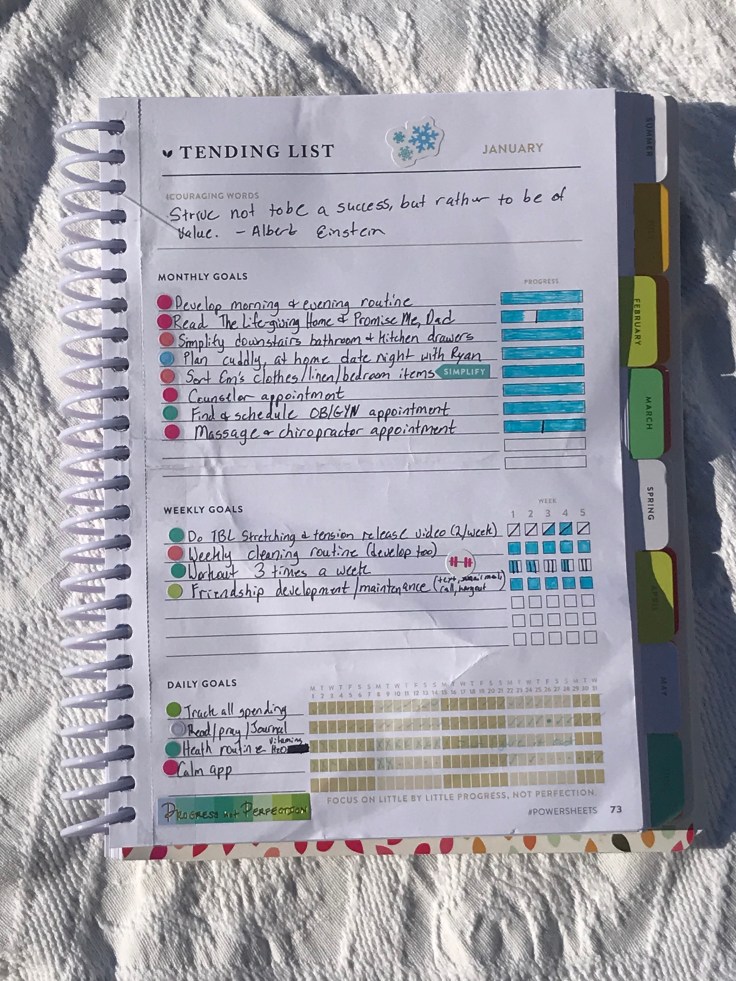 TENDING LIST
JANUARY
COURAGING WORDS
Strive not to be a success, but rather to be of
value. - Albert Einstein
MONTHLY GOALS
PROGRESS
Develop morning & evening routine
Read The Lifegiving Home & Promise Me, Dad
Simplify downstairs bathroom & kitchen drawers
Plan cuddly, at home date night with Ryan
Sort Em's clothes/linen/bedroom items SIMPLIFY
Counselor appointment
Find & schedule OB/GYN appointment
Massage & chiropractor appointment
WEEKLY GOALS
WEEK
1 2 3 4 5
Do TBL Stretching & tension release video (2/week)
Weekly cleaning routine (develop too)
Workout 3 times a week
Friendship development/maintenance (text, call, hangout
DAILY GOALS
M T W T F S S M T W T F S S M T W T F S S M T W T F S S M T W
1 2 3 4 5 6 7 8 9 10 11 12 13 14 15 16 17 18 19 20 21 22 23 24 25 26 27 28 29 30 31
Track all spending
Read/pray/Journal
Heath routine vitamins H2O
Calm app
PROGRESS not PERFECTION
FOCUS ON LITTLE BY LITTLE PROGRESS, NOT PERFECTION.
#POWERSHEETS 73
SUMMER
FEBRUARY
MARCH
SPRING
APRIL
MAY